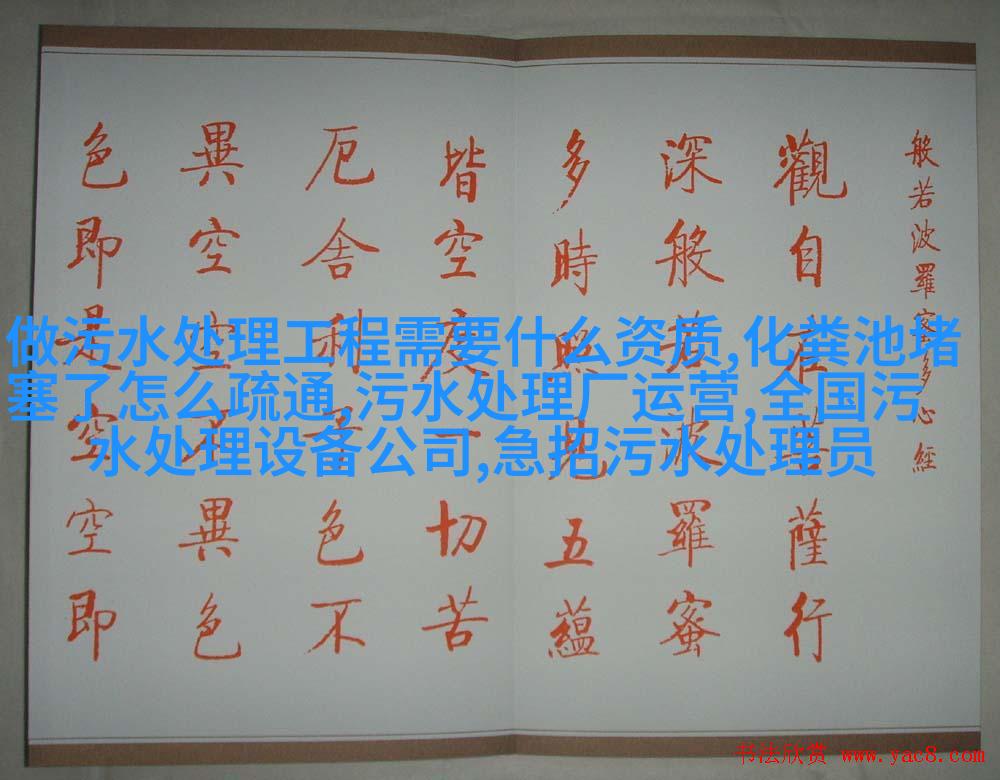 般若波羅蜜多心經
觀自在菩薩行
深般若波羅蜜
多時照見五蘊
皆空度一切苦
厄舍利子色不
異空空不異色
色即是空空即
做污水处理工程需要什么资质,化粪池堵
塞了怎么疏通,污水处理厂运营,全国污
水处理设备公司,急招污水处理员
书法欣赏 www.yac8.com